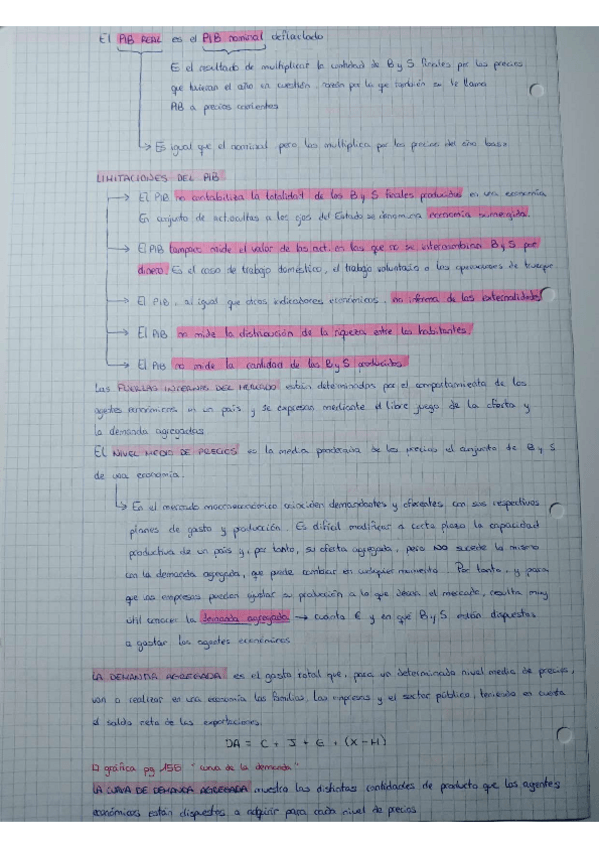 El PIB REAL es el PIB nominal deflactado
Es el resultado de multiplicar la cantidad de B y S finales por los precios
que tuvieran el año en cuestión, razón por la que también se le llama
PIB a precios corrientes
Es igual que el nominal pero los multiplica por los precios del año base
LIMITACIONES DEL PIB
El PIB no contabiliza la totalidad de los B y S finales producidos en una economía
En conjunto de act. ocultas a los ojos del Estado se denomina economía sumergida.
El PIB tampoco mide el valor de las act. en las que no se intercambian B y S por
dinero. Es el caso de trabajo doméstico, el trabajo voluntario o las operaciones de trueque
El PIB, al igual que otros indicadores económicos, no informa de las externalidades
El PIB no mide la distribución de la riqueza entre los habitantes.
El PIB no mide la cantidad de los B y S producidos.
Las FUERZAS INTERNAS DEL MERCADO están determinadas por el comportamiento de los
agentes económicos en un país y se expresan mediante el libre juego de la oferta y
la demanda agregadas
El NIVEL MEDIO DE PRECIOS es la media ponderada de los precios el conjunto de B y S
de una economía.
En el mercado macroeconómico coinciden demandantes y oferentes, con sus respectivos
planes de gasto y producción. Es difícil modificar a corto plazo la capacidad
productiva de un país y, por tanto, su oferta agregada, pero NO sucede lo mismo
con la demanda agregada, que puede cambiar en cualquier momento. Por tanto, y para
que las empresas puedan ajustar su producción a lo que desea el mercado, resulta muy
util conocer la demanda agregada → cuánto € y en qué B y S están dispuestos
a gastar los agentes económicos
LA DEMANDA AGREGADA es el gasto total que, para un determinado nivel medio de precios,
van a realizar en una economía las familias, las empresas y el sector público, teniendo en cuenta
el saldo neto de las exportaciones.
DA = C + I + G + (X-M)
gráfica pg 158 "curva de la demanda"
LA CURVA DE DEMANDA AGREGADA muestra las distintas cantidades de producto que los agentes
económicos están dispuestos a adquirir para cada nivel de precios